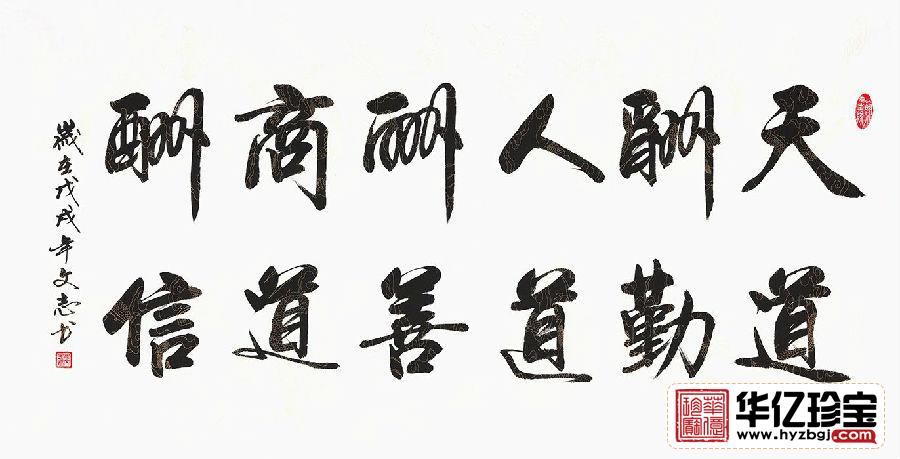 天道
酬勤
人道
酬善
商道
酬信
歲在戊戌年文志书
华亿珍宝
www.hyzbgj.com